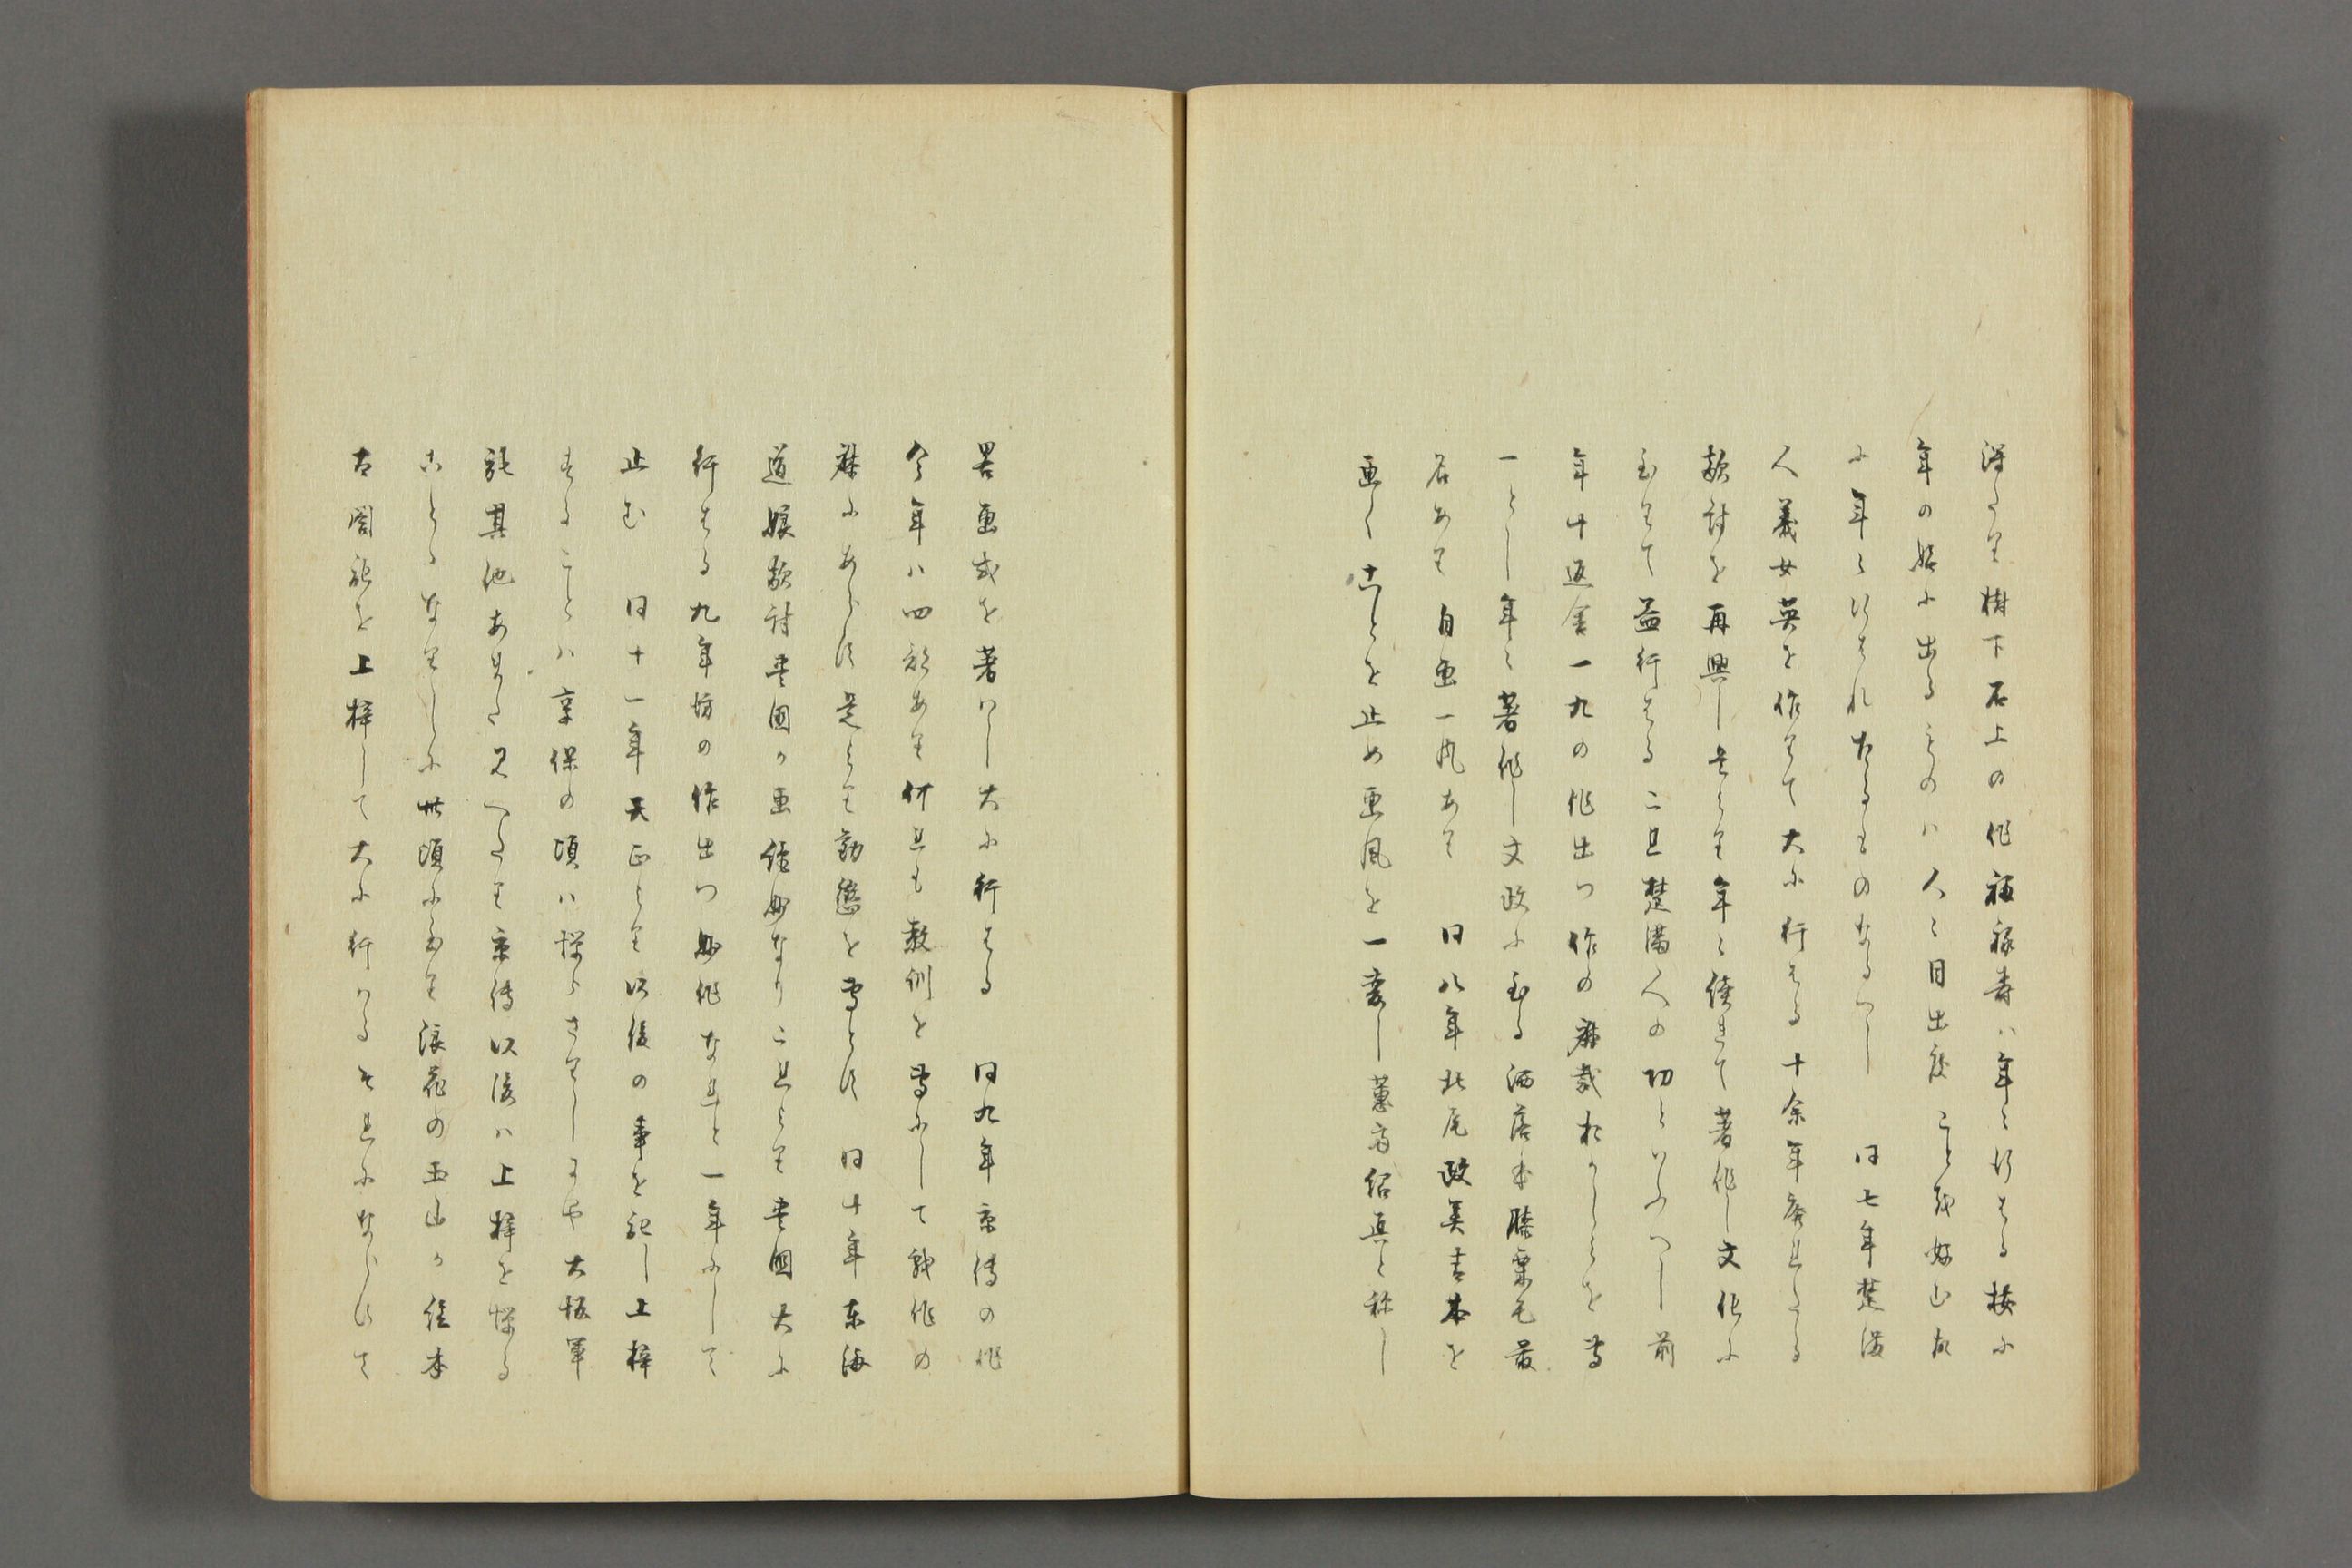 得たり樹下石上の作福禄寿ハ年々行はる按に
年の始に出るものハ人々目出度ことを好む故
に年々行はれたるものなるへし　同七年楚満
人義女英を作りて大に行はる十余年廃れたる
敵討を再興し是より年々続きて著作し文化に
至りて益行はるこれ楚満人の功といふへし前
年十返舎一九の作出つ作の麁裁おかしきを専
一とし年々著作し文政に至る洒落本膝栗毛最
名あり自画一風あり　同八年北尾政美青本を
画くことを止め画風を一変し蕙斎紹真と称し
略画式を著ハし大に行はる　同九年京傳の作
今年ハ四部あり何れも教訓を専にして戯作の
麁にあらす是より勧懲を専とす　同十年東海
道娘敵討豊国か画絶妙なりこれより豊国大に
行はる九年坊の作出つ妙作なれと一年にして
止む　同十一年天正より以後の事を記し上梓
することハ享保の頃ハ憚らさりしにや大坂軍
記其他あまた見へたり京傳以後ハ上梓を憚る
ことゝなりしに此頃に至り浪花の玉山か絵本
太閤記を上梓して大に行ハるそれにならひて